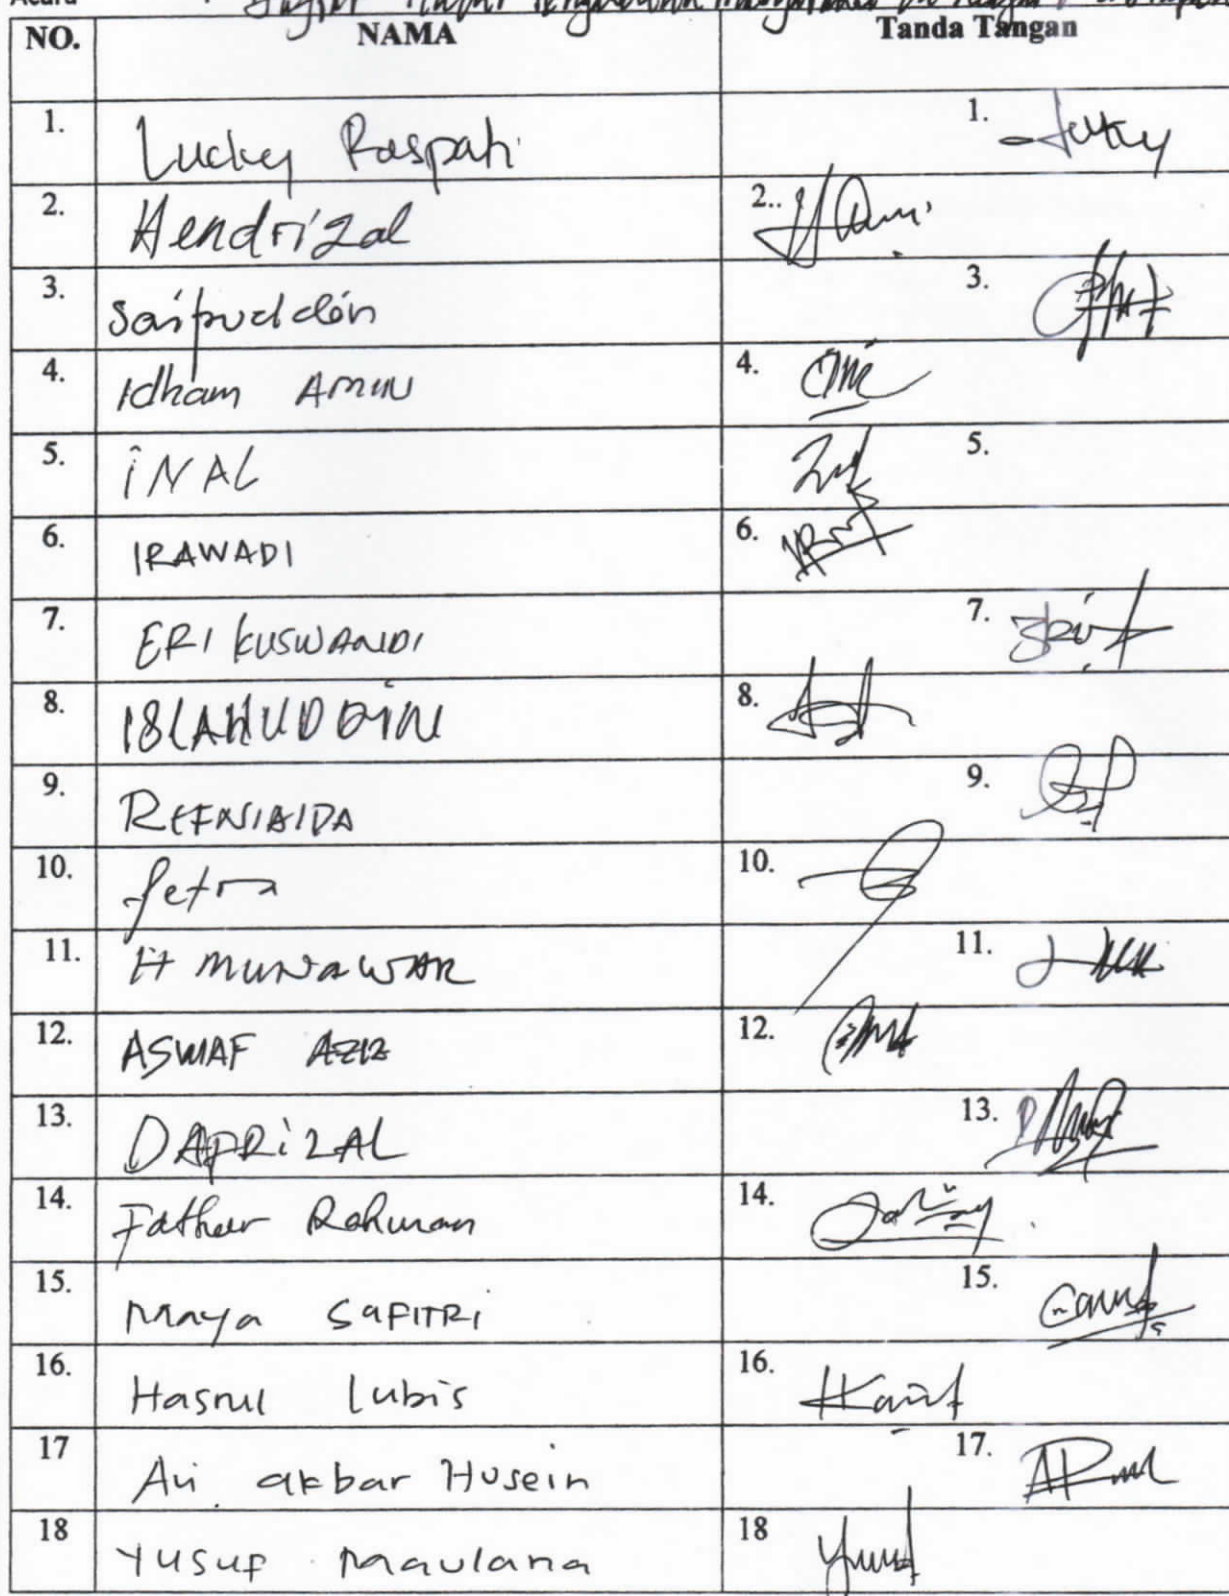 Acara :
NO. NAMA Tanda Tangan
1. Lucky Raspati 1.
2. Hendrizal 2..
3. Saifuddin 3.
4. Idham Amin 4.
5. iNAL 5.
6. IRAWADI 6.
7. ERI KUSWANDI 7.
8. ISLAHUDDIN 8.
9. REFNIAIDA 9.
10. Petra 10.
11. H MUNAWAR 11.
12. ASWAF AZIZ 12.
13. DAFRiZAL 13.
14. Fathur Rahman 14.
15. Maya SAFITRI 15.
16. Hasrul Lubis 16.
17 Ali akbar Husein 17.
18 Yusuf Maulana 18